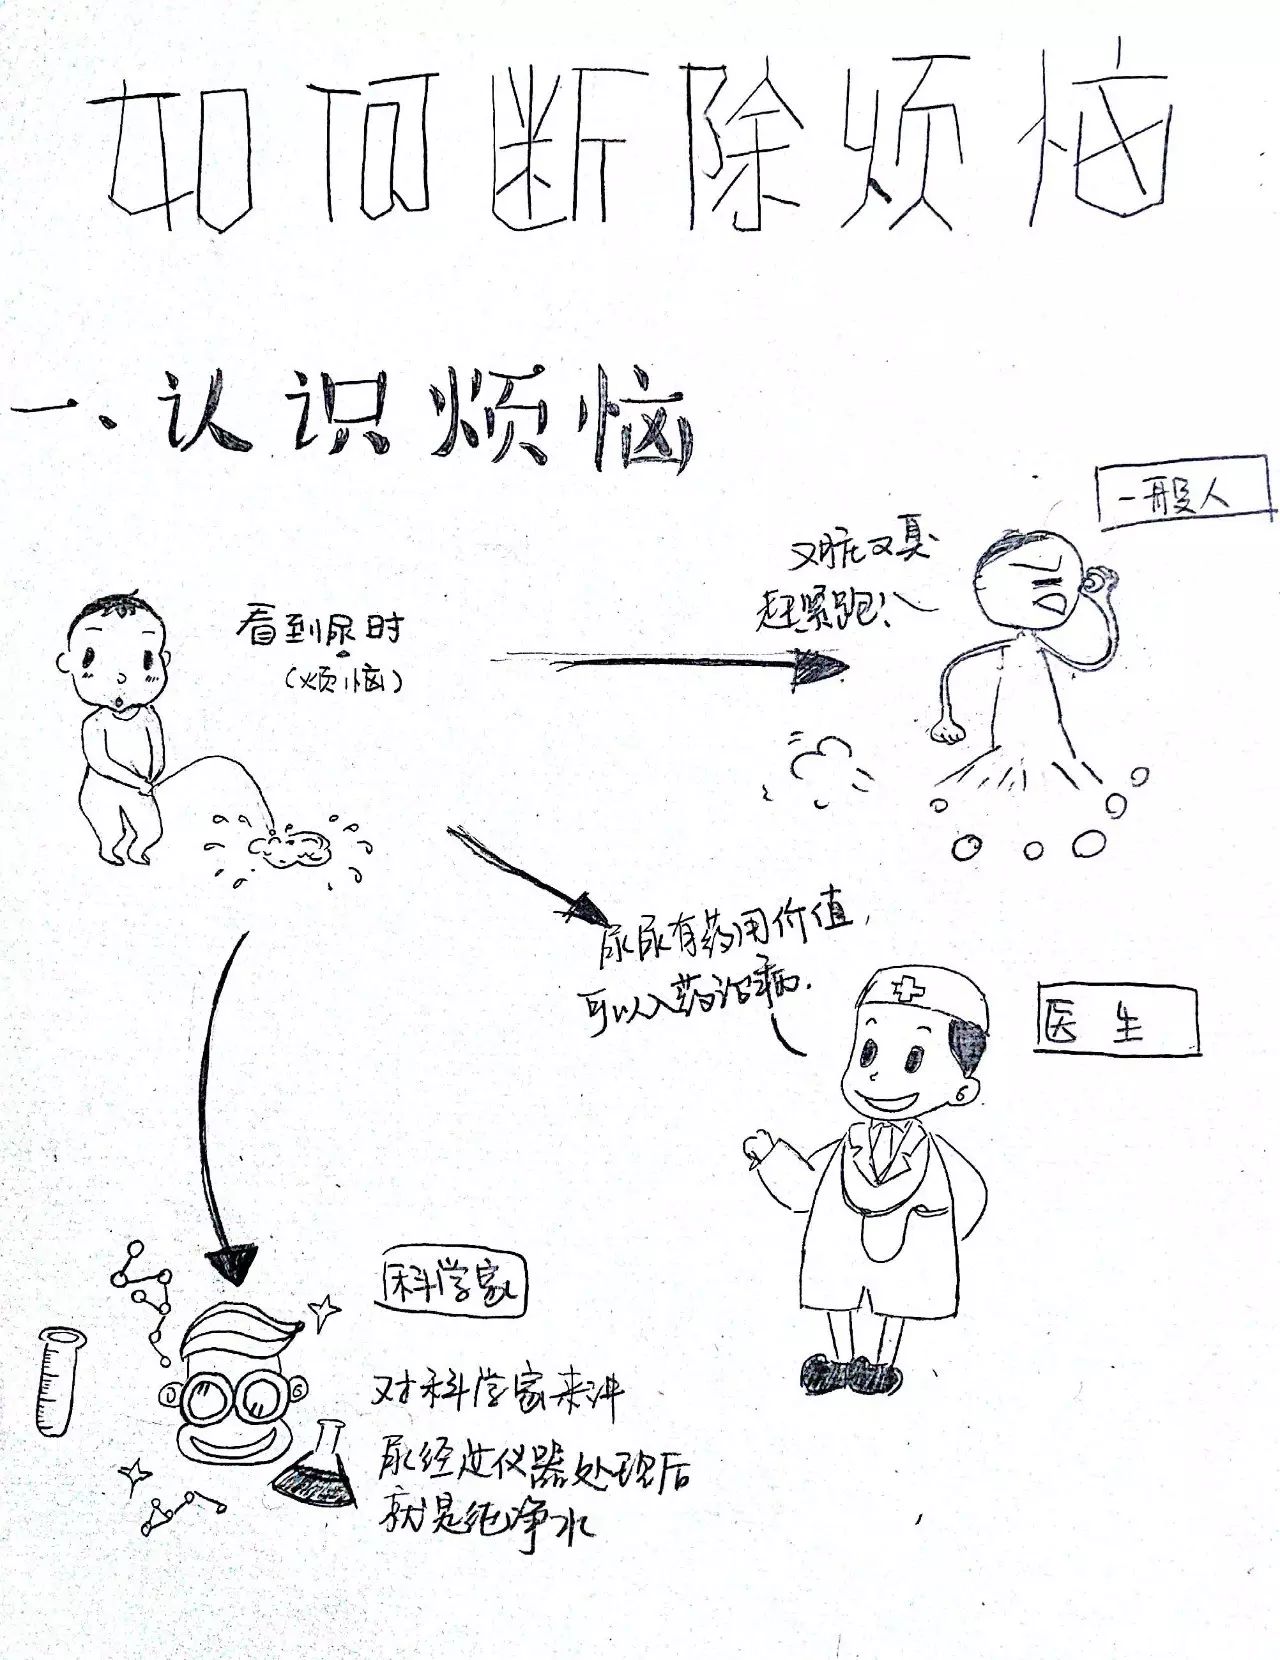 如何断除烦恼
一、认识烦恼
一般人
又脏又臭
赶紧跑!
看到尿时
(烦恼)
尿尿有药用价值,
可以入药治病.
医生
科学家
对科学家来讲
尿经过仪器处理后
就是纯净水